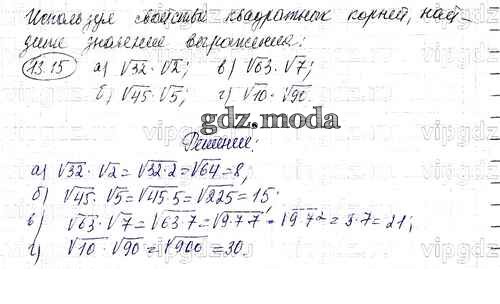 Используя свойства квадратных корней, най-
дите значение выражения:
13.15 а) √32 · √2; в) √63 · √7;
б) √45 · √5; г) √10 · √90.
gdz.moda
Решение:
а) √32 · √2 = √32·2 = √64 = 8;
б) √45 · √5 = √45·5 = √225 = 15
в) √63 · √7 = √63·7 = √9·7·7 = √9·7² = 3·7 = 21;
г) √10 · √90 = √900 = 30.